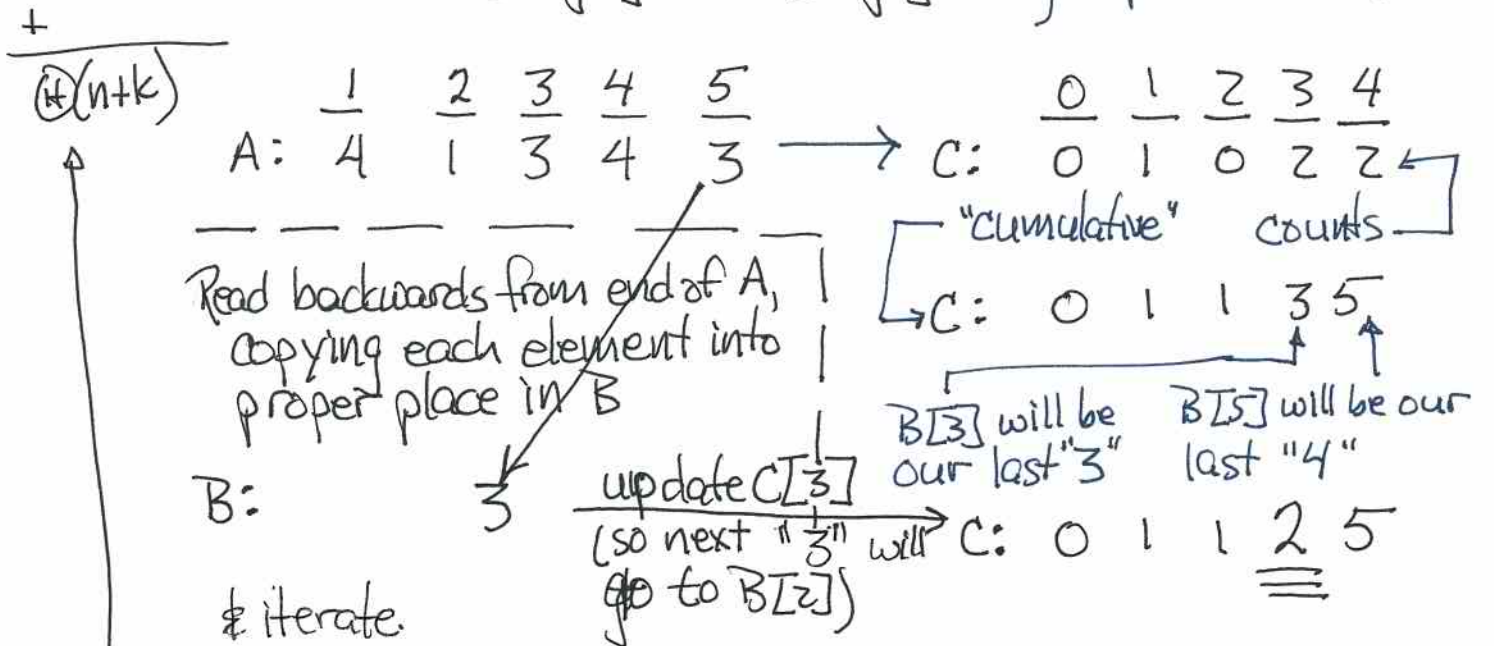 +
Θ(n+k)
1 2 3 4 5
A: 4 1 3 4 3
0 1 2 3 4
C: 0 1 0 2 2
"cumulative" counts
C: 0 1 1 3 5
Read backwards from end of A,
copying each element into
proper place in B
B[3] will be
our last "3"
B[5] will be our
last "4"
B: 3
update C[3]
(so next "3" will
go to B[2])
C: 0 1 1 2 5
& iterate.